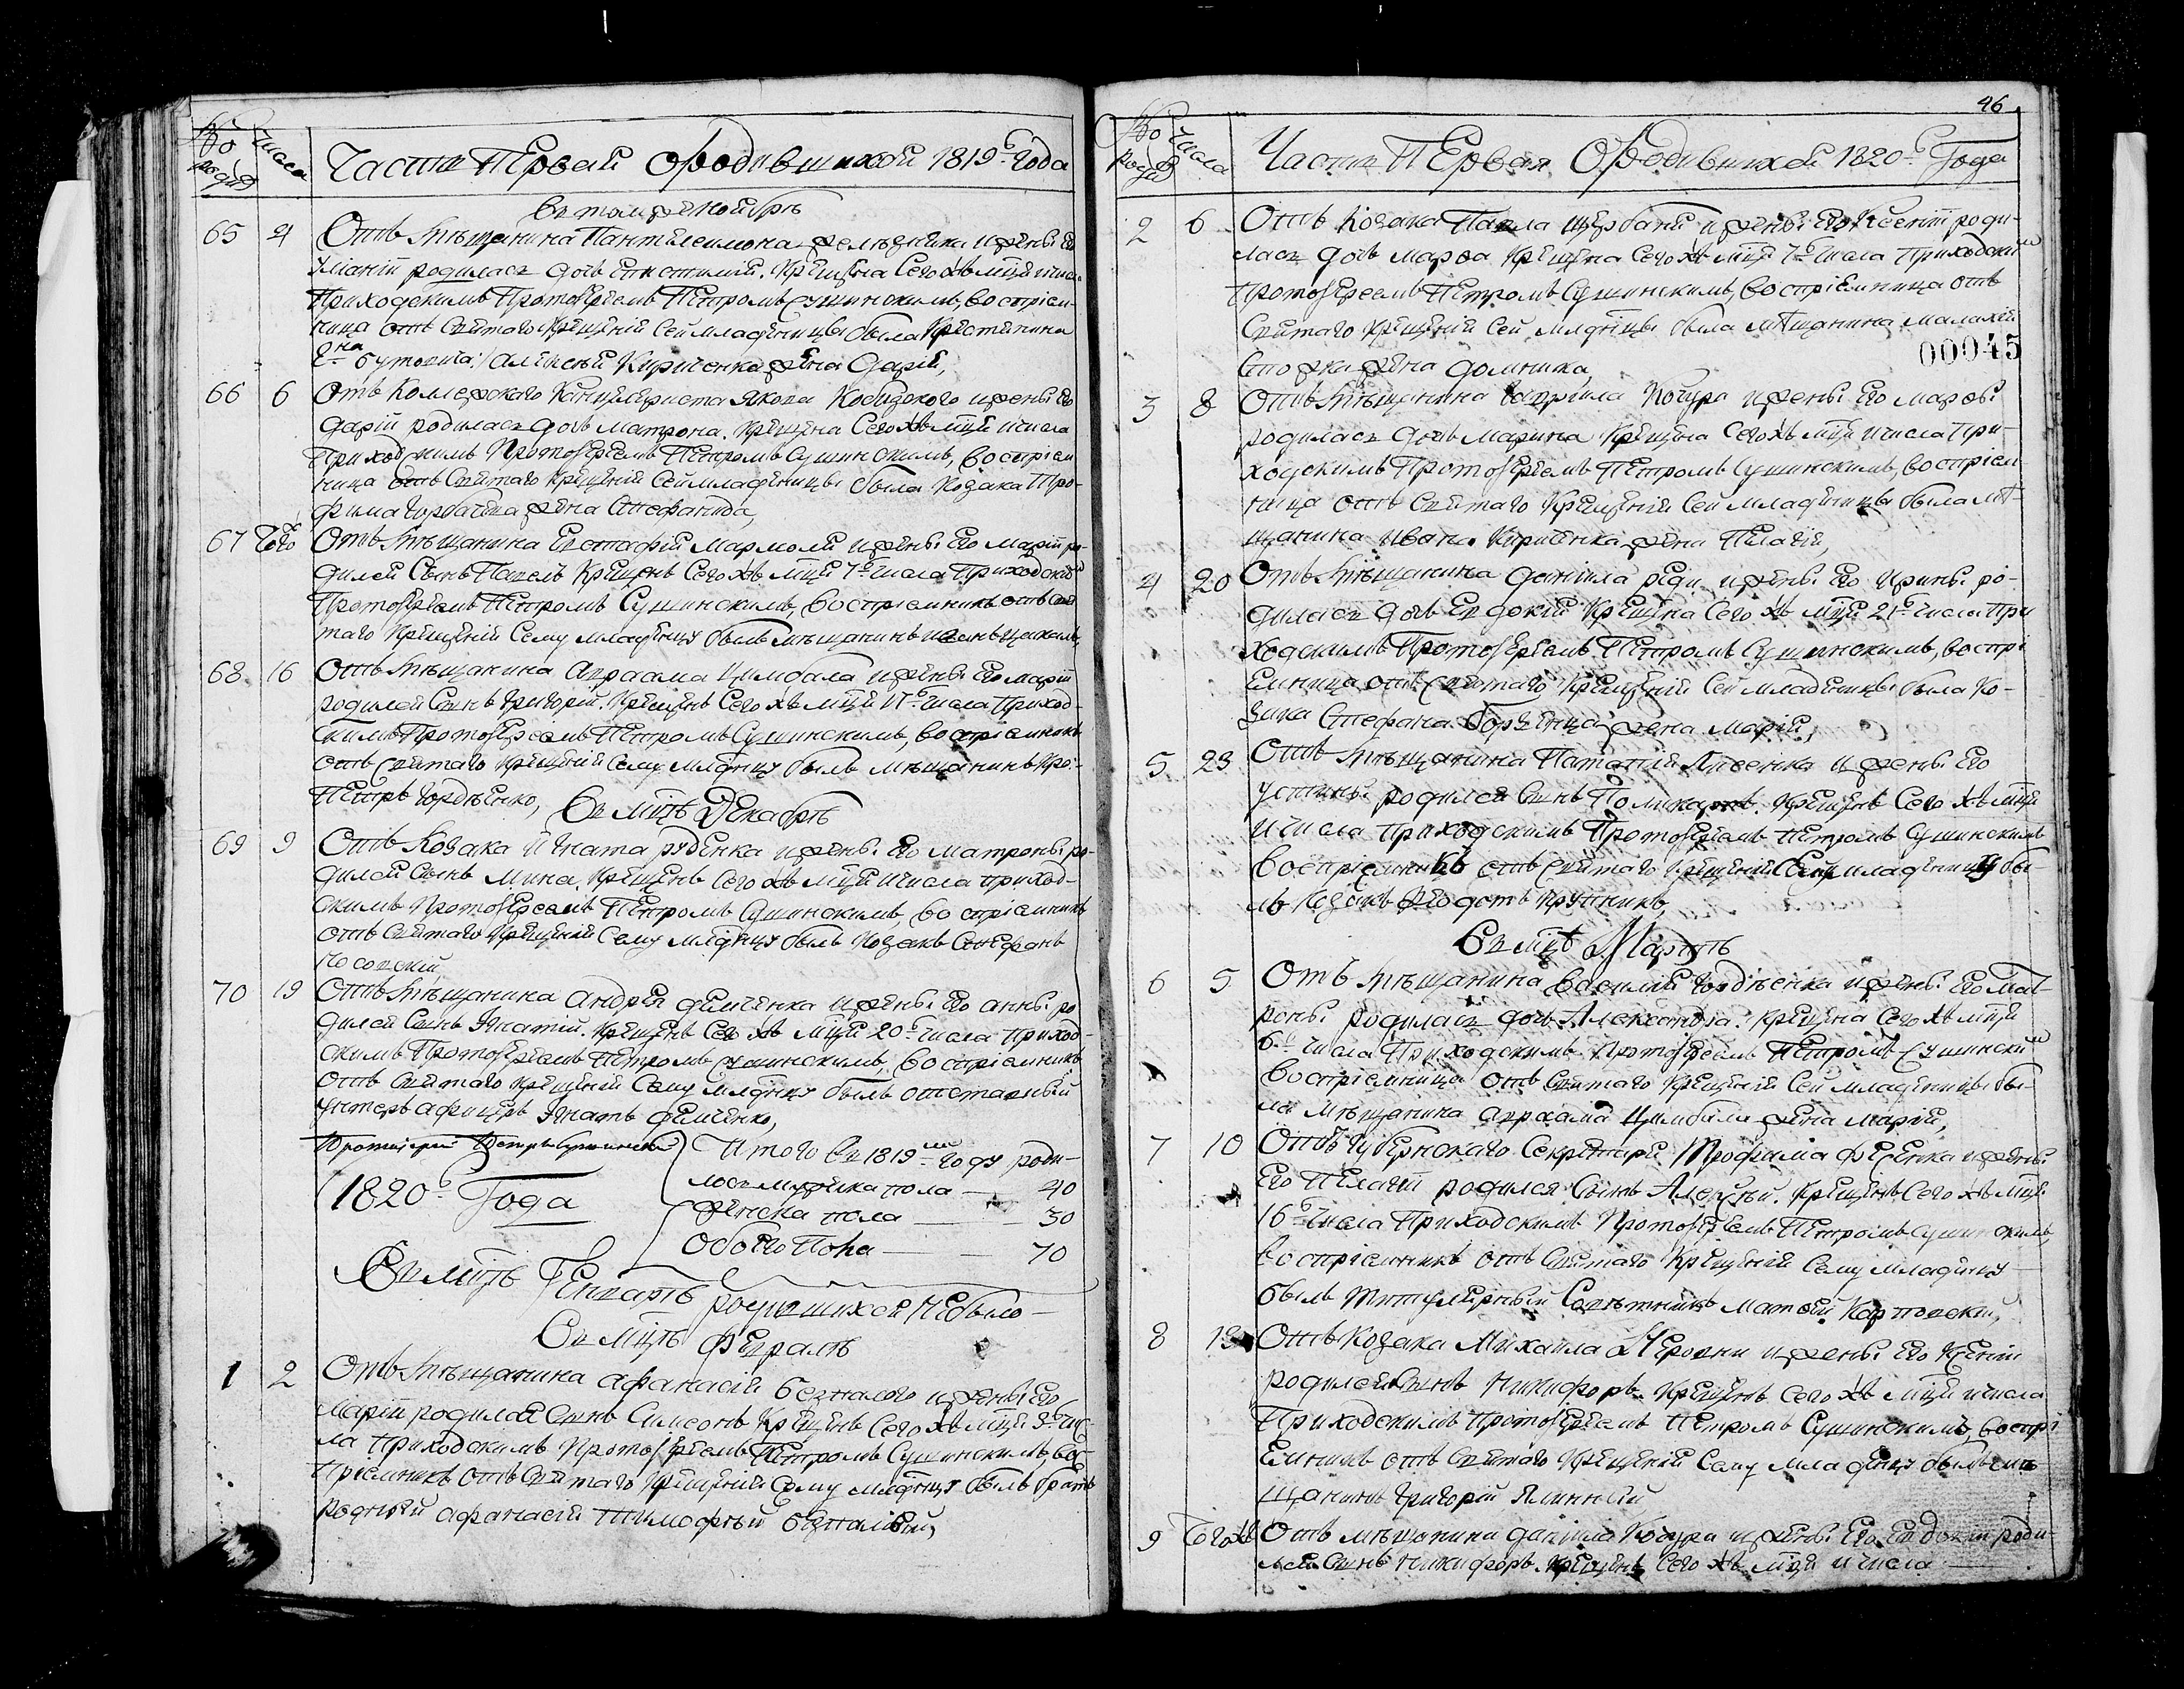 № родив
Числа
Часть Первая ородившихся 1819г. года
в томже ноябрѣ
65 4 Отъ мѣщанина Пантелеимона и жены его
Уліаніи родилась дочь Крещена сего жъ мца и числа
Приходскимъ Протоіереемъ Петромъ Сушинскимъ, воспріем-
ница отъ святаго крещенія сей младеницы была
Алексѣя Кириченка жена Дарія,
66 6 Отъ Колежскаго Канцеляриста Якова и жены его
Даріи родилась дочь Матрона. Крещена сего жъ мца и числа
Приходскимъ Протоіереемъ Петромъ Сушинскимъ, воспріем
ница отъ святаго крещенія сей младеницы была козака Тро-
фима Горбатенка жена Стефанида,
67 того Отъ мѣщанина Евстафія Мармоля и жены его Маріи ро-
дился сынъ Павелъ Крещенъ сего жъ мца 7г числа Приходскимъ
Протоіереемъ Петромъ Сушинскимъ, воспріемникъ отъ свя
таго крещенія сему младенцу былъ мѣщанинъ
68 16 Отъ мѣщанина Авраама Цимбала и жены его Маріи
родился сынъ Григорій. Крещенъ сего жъ мца 17г числа Приход-
скимъ Протоіереемъ Петромъ Сушинскимъ, воспріемникъ
отъ святаго крещенія сему млднцу былъ мѣщанинъ
Петръ Гордѣенко, в мцѣ Декабрѣ
69 9 Отъ Козака Игната Руденка и жены его Матроны ро-
дился сынъ Мина. Крещенъ сего жъ мца и числа приход-
скимъ Протоіереемъ Петромъ Сушинскимъ, воспріемникъ
отъ святаго крещенія сему млднцу былъ козакъ Стефанъ
Носовскій,
70 19 Отъ мѣщанина Андрея Демченка и жены его Анны ро
дился сынъ Игнатій. Крещенъ сего жъ мца 20г числа приход-
скимъ Протоіереемъ Петромъ Сушинскимъ, воспріемникъ
отъ святаго крещенія сему млднцу былъ отставный
унтеръ афицеръ Игнатъ Демченко,
Протоіерей Петръ Сушинскій
Итого в 1819м году роди-
лось мужеска пола — 40
женска пола — 30
обоего пола — 70
1820г. Года
В мцѣ Генварѣ родившихся небыло
В мцѣ Февралѣ
1 2 Отъ мѣщанина Афанасія Безпалого и жены его
Маріи родился сынъ Симеонъ Крещенъ сего жъ мца 3г чис-
ла Приходскимъ Протоіереемъ Петромъ Сушинскимъ, вос-
пріемникъ отъ святаго крещенія сему младенцу былъ братъ
родный Афанасія Тимофѣй Безпалый,
46
№ родив
Числа
Часть Первая Ородившихся 1820г. Года
2 6 Отъ козака Павла Щербаня и жены его Ксеніи роди-
лась дочь Марѳа Крещена сего жъ мца 7г числа Приходским
Протоіереемъ Петромъ Сушинскимъ, воспріемница отъ
святаго крещенія сей младницы была мѣщанина Малахія
жена Домникія,
00045
3 8 Отъ мѣщанина Гавріила Кочура и жены его Марѳы
родилась дочь Марина Крещена сего жъ мца и числа При-
ходскимъ Протоіереемъ Петромъ Сушинскимъ, воспріем
ница отъ святаго крещенія сей младеницы была мѣ-
щанина Ивана Кириченка жена Пелагія,
4 20 Отъ мѣщанина Даніила и жены его Ирины ро-
дилась дочь Евдокія Крещена сего жъ мца 21г числа При
ходскимъ Протоіереемъ Петромъ Сушинскимъ, воспрі
емница отъ святаго крещенія сей младеницы была ко-
зака Стефана жена Марія,
5 23 Отъ мѣщанина Патапія и жены его
Устиньи родился сынъ Поликарпъ. Крещенъ сего жъ мца
и числа Приходскимъ Протоіереемъ Петромъ Сушинскимъ
воспріемникъ отъ святаго крещенія сему младенцу бы-
лъ козакъ Ѳеодотъ
В мцѣ Мартѣ
6 5 Отъ мѣщанина Василія Гордѣенка и жены его Мат-
роны родилась дочь Александра. Крещена сего жъ мца
6г числа Приходскимъ Протоіереемъ Петромъ Сушинским
воспріемница отъ святаго крещенія сей младеницы бы-
ла мѣщанина Авраама Цимбала жена Марія,
7 10 Отъ Губернскаго Секретаря Трофима Фесенка и жены
его Пелагіи родился сынъ Алексѣй. Крещенъ сего жъ мца
16г числа Приходскимъ Протоіереемъ Петромъ Сушинскимъ,
воспріемникъ отъ святаго крещенія сему младенцу
былъ Титулярный Совѣтникъ Матѳей Карповскій,
8 13 Отъ козака Михаила и жены его Ксеніи
родился сынъ Никифоръ. Крещенъ сего жъ мца и числа
Приходскимъ Протоіереемъ Петромъ Сушинскимъ, воспрі
емникъ отъ святаго крещенія сему младенцу былъ мѣ
щанинъ Григорій
9 тогожъ Отъ мѣщанина Даніила Кочура и жены его Евдокіи роди-
лся сынъ Никифоръ. Крещенъ сего жъ мца и числа